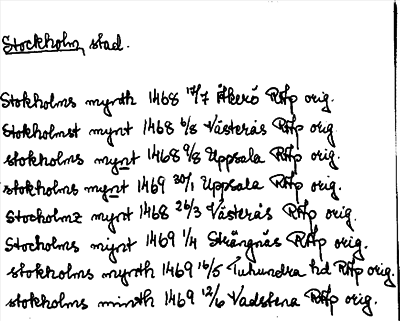 Stockholm, stad.
Stokholms mynth 1468 17/7 Åkerö RAp orig.
Stokholmst mynt 1468 6/8 Västerås RAp orig.
stokholms mynt 1468 9/8 Uppsala RAp orig.
stokholms mynt 1469 30/1 Uppsala RAp orig.
Stocholmz mynt 1468 26/3 Västerås RAp orig.
Stocholms mijnt 1469 1/4 Strängnäs RAp orig.
stokholms mynth 1469 16/5 Tuhundra hd RAp orig.
stokholms minth 1469 12/6 Vadstena RAp orig.